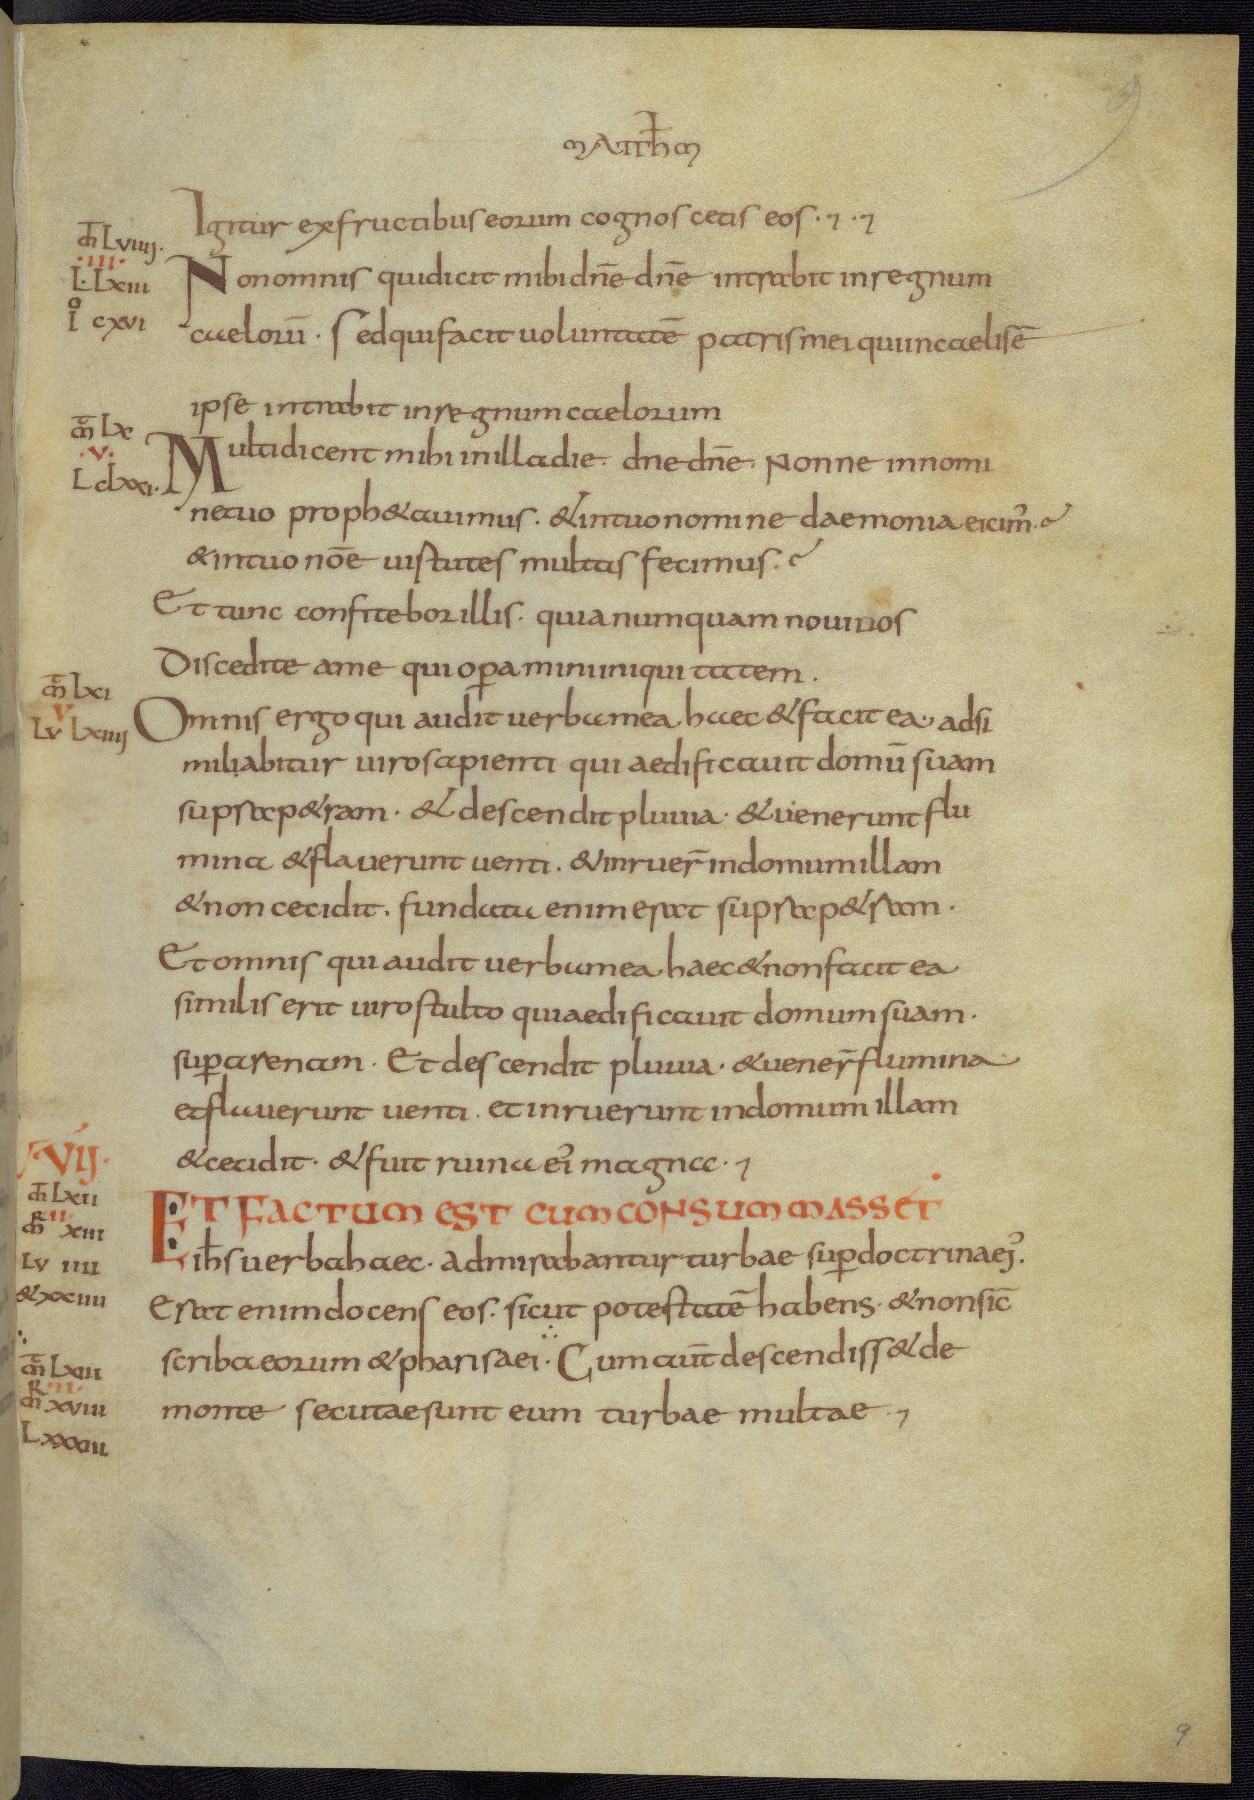 MATTHM
Igitur exfructibus eorum cognoscetis eos.
m̄ Lviiij.
.iiii.
L. Lxiii
IO cxvi
Nonomnis quidicit mihi dn̄e dn̄e intrabit inregnum
caeloru̅. Sedquifacit uoluntate̅ patrismei quiincaelis e̅
ipse intrabit inregnumcaelorum
m̄ Lx
.v.
L cLxxi.
Multidicent mihi inilladie. dne dn̄e. Nonne innomi
netuo proph&auimus. &intuonomine daemonia eicim᾽.
&intuo no̅e uirtutes multas fecimus.
Et tunc confitebor illis. quia numquam noui uos
Discedite ame qui op̱aminiiniquitatem.
m̄ Lxi
v
Lv Lxiiij
Omnis ergo qui audit uerbamea haec &facit ea. adsi
miliabitur uirosapienti qui aedificauit domu̅ suam
suprap&ram. & descendit pluuia. &uenerunt flu
mina &flauerunt uenti. &inruer̄ indomumillam
&non cecidit. fundata enim erat suprap&ram.
Et omnis qui audit uerbamea haec&nonfacit ea
similis erit uirostulto quiaedificauit domumsuam.
sup̱arenam. Et descendit pluuia. &uener̄ flumina
etflauerunt uenti. et inruerunt indomum illam
&cecidit. &fuit ruina ei᾽ magna.
VIJ.
m̄ Lxii
R ii.
m̄ xiii
Lv iiii
&xxiiii
ET FACTUM EST CUMCONSUMMASSET
ih̄s uerbahaec. admirabantur turbae sup̱doctrinaej᾽.
Erat enimdocens eos. sicut potestate̅ habens. &nonsic̄
scribaeorum &pharisaei. Cumaut̄ descendiss&de
m̄ Lxiii
R ii.
m̄ xviii
Lxxxiii
monte secutaesunt eum turbae multae.
9